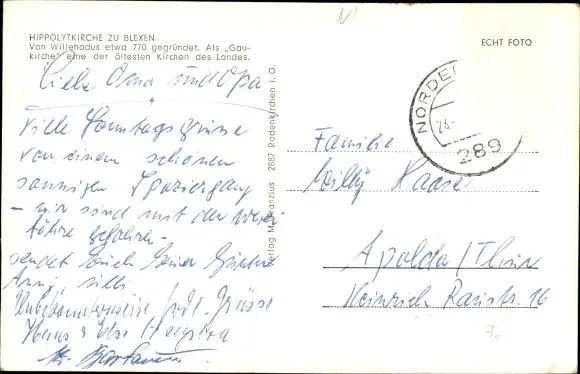 HIPPOLYTKIRCHE ZU BLEXEN
Von Willehadus etwa 770 gegründet. Als „Gau-
kirche" eine der ältesten Kirchen des Landes.
ECHT FOTO
Liebe Oma und Opa
viele Sonntagsgrüsse
von einem schönen
sonnigen Spaziergang
– wir sind mit der Weser
fähre gefahren –
sendet Euch Günter
Anni, Silli
Unbekannterweise Grüsse
Hans & Else
Verlag M. 2887 Rodenkirchen i. O.
NORDE
24.
289
Familie
Willy Haase
Apolda / Thür
Heinrich Raustr. 16